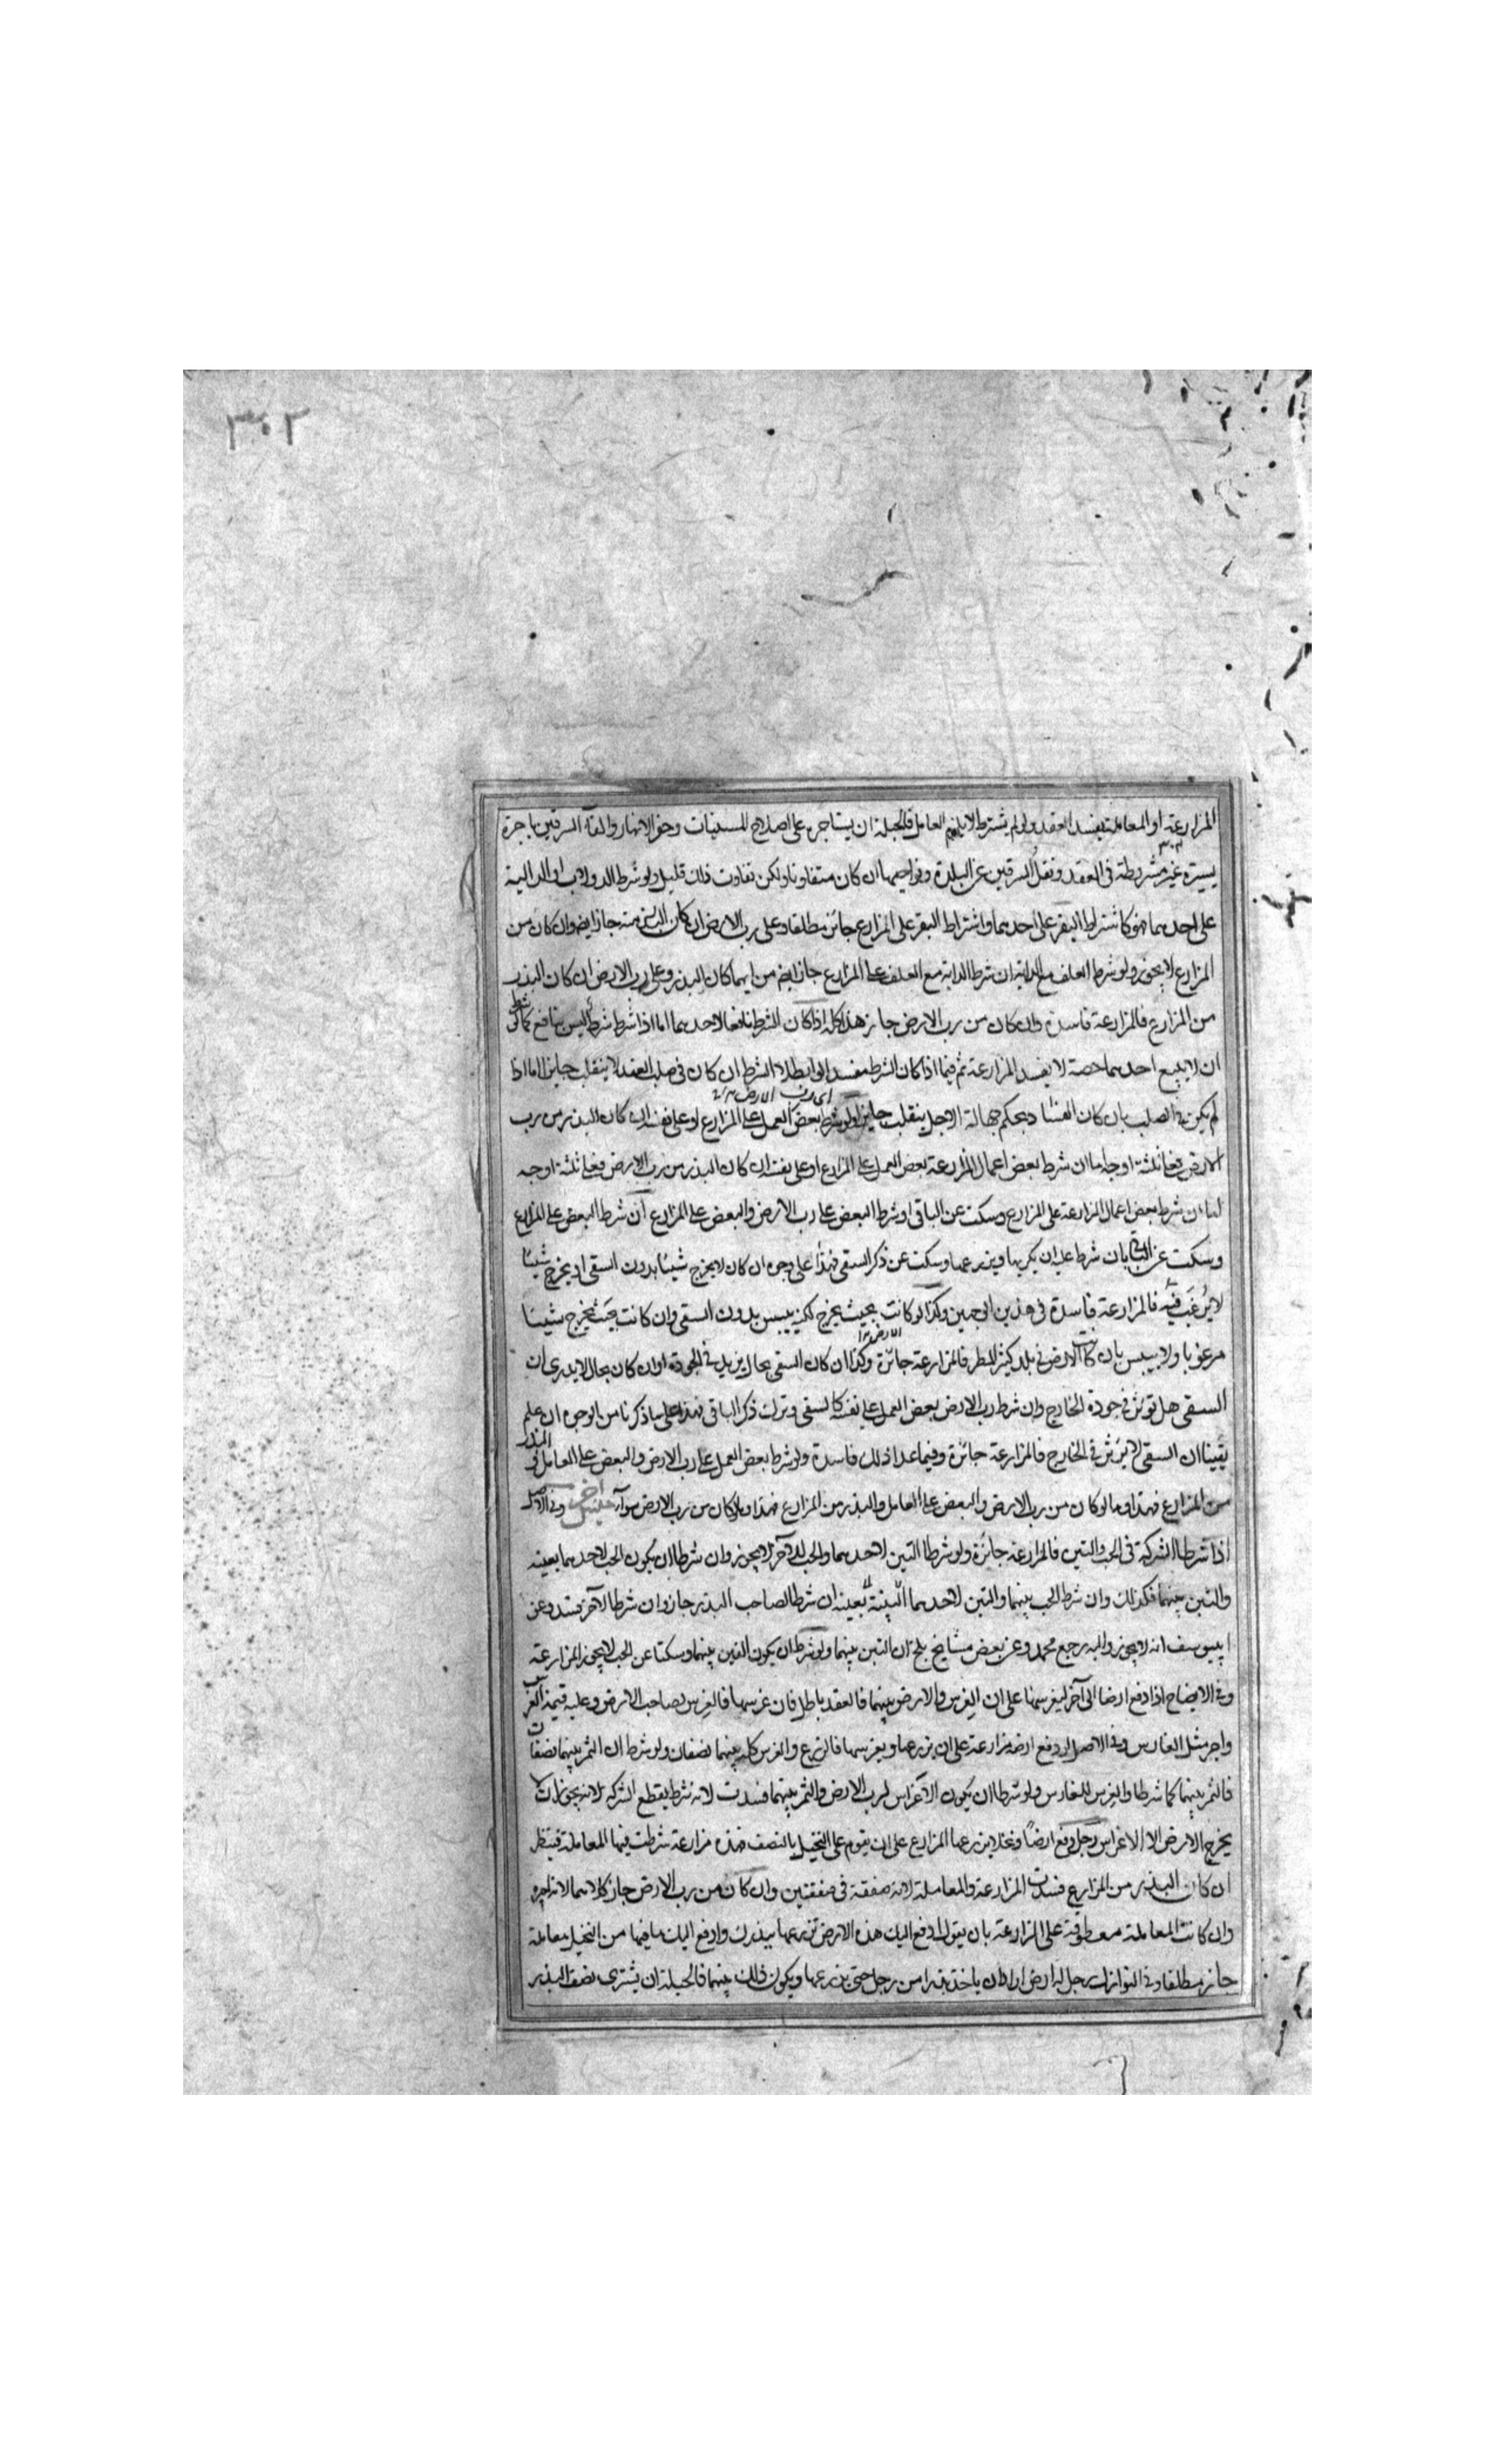 ٣٠٢
المزارعة او المعاملة يفسد العقد ولو لم يشترط لا يلزم العامل فالحيلة ان يستاجره على اصلاح المسنيات وحفر الانهار والقاء السرقين باجرة
يسيرة غير مشروطة فى العقد ونقل السرقين عن البلدة ونواحيها ان كان متفاوتا ولكن تفاوت ذلك قليل ولو شرط الدولاب او الدالية
على احدهما فهو كاشتراط البقر على احدهما واشتراط البقر على المزارع جائز مطلقا وعلى رب الارض ان كان البذر منه جاز ايضا وان كان من
المزارع لا يجوز ولو شرط العلف مع الدابة ان شرط الدابة مع العلف على المزارع جاز ايضا من ايهما كان البذر وعلى رب الارض ان كان البذر
من المزارع فالمزارعة فاسدة وان كان من رب الارض جاز هذا كله اذا كان الشرط نافعا لاحدهما اما اذا شرط شرطا ليس بنافع كما لو شرط
ان لا يبيع احدهما حصة لا يفسد المزارعة ثم فيما اذا كان الشرط مفسدا لو ابطلا الشرط ان كان فى صلب العقد لا ينقلب جايزا اما اذا
اى رب الارض
لم يكن فى الصلب بان كان الفساد بحكم جهالة الاجل ينقلب جايزا ولو شرط بعض العمل على المزارع او على نفسه ان كان البذر من رب
الارض فعلى ثلثة اوجه اما ان شرط بعض اعمال المزارعة بعض العمل على المزارع او على نفسه ان كان البذر من رب الارض فعلى ثلثة اوجه
اما ان شرط بعض اعمال المزارعة على المزارع وسكت عن الباقى او شرط البعض على رب الارض والبعض على المزارع ان شرط البعض على المزارع
وسكت عن الباقى بان شرط عليه ان يكربها ويزرعها وسكت عن ذكر السقى فهذا على وجوه ان كان لا يخرج شيئا بدون السقى او يخرج شيئا
لا يرغب فيه فالمزارعة فاسدة فى هذين الوجهين وكذا لو كانت بحيث يخرج لكنه ييبس بدون السقى وان كانت بحيث يخرج شيئا
مرغوبا ولا ييبس بان كانت الارض فى بلد كثير المطر فالمزارعة جائزة وكذا ان كان السقى بحال يزيد فى الجودة وان كان بحال لا يدرى ان
السقى هل توثر فى جودة الخارج وان شرط رب الارض بعض العمل على نفسه كالسقى وترك ذكر الباقى فهذا على ما ذكرنا من الوجوه ان علم
يقينا ان السقى لا يوثر فى الخارج فالمزارعة جائزة وفيما عدا ذلك فاسدة ولو شرط بعض العمل على رب الارض والبعض على العامل والبذر
من المزارع فهذا وما لو كان من رب الارض والبعض على العامل والبذر من المزارع فهذا وما لو كان من رب الارض سواء وفى الاصل
اذا شرطا الشركة فى الحب والتبن فالمزارعة جائزة ولو شرطا التبن لاحدهما والحب للآخر لا يجوز وان شرطا ان يكون الحب لاحدهما بعينه
والتبن بينهما فكذلك وان شرط الحب بينهما والتبن لاحدهما بعينه ان شرطا لصاحب البذر جاز وان شرطا لآخر فسد وعن
ابييوسف انه لا يجوز واليه رجع محمد وعن بعض مشايخ بلخ ان التبن بينهما ولو شرطا ان يكون التبن بينهما وسكتا عن الحب لا يجوز المزارعة
وفى الايضاح اذا دفع ارضا الى آخر ليغرسها على ان الغرس والارض بينهما فالعقد باطل فان غرسها فالغرس لصاحب الارض وعليه قيمة الغرس
واجر مثل الغارس وفى الاصل ان دفع ارضه مزارعة على ان يزرعها ويغرسها فالزرع والغرس كله بينهما نصفان ولو شرط ان الثمر بينهما نصفان
فالثمر بينهما كما شرطا والغرس للغارس ولو شرطا ان يكون الاغراس لرب الارض والثمر بينهما فسدت لانه شرط يقطع الشركة لانه يجوز ان لا
يخرج الارض الا الاغراس رجل دفع ارضا ونخلا يزرعها المزارع على ان يقوم على النخيل بالنصف فهذه مزارعة شرطت فيها المعاملة فينظر
ان كان البذر من المزارع فسدت المزارعة والمعاملة لانه صفقة فى صفقتين وان كان من رب الارض جاز كلاهما لانه اجره
وان كانت المعاملة معطوفة على المزارعة بان يقول ادفع اليك هذه الارض تزرعها ببذرك وادفع اليك ما فيها من النخيل معاملة
جائز مطلقا وفى النوازل رجل له ارض اراد ان ياخذ بذرا من رجل حتى يزرعها ويكون ذلك بينهما فالحيلة ان يشترى نصف البذر